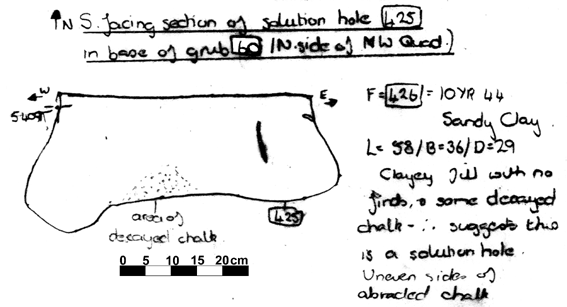 N S. facing section of solution hole 425
in base of grub 60 (N. side of NW Quad.)
W
E
5.40m
area of
decayed chalk.
425
0 5 10 15 20cm
F = 426 / = 10YR 44
Sandy Clay.
L = 58 / B = 36 / D = 29
Clayey fill with no
finds, & some decayed
chalk - ∴ suggests this
is a solution hole.
Uneven sides of
abraded chalk